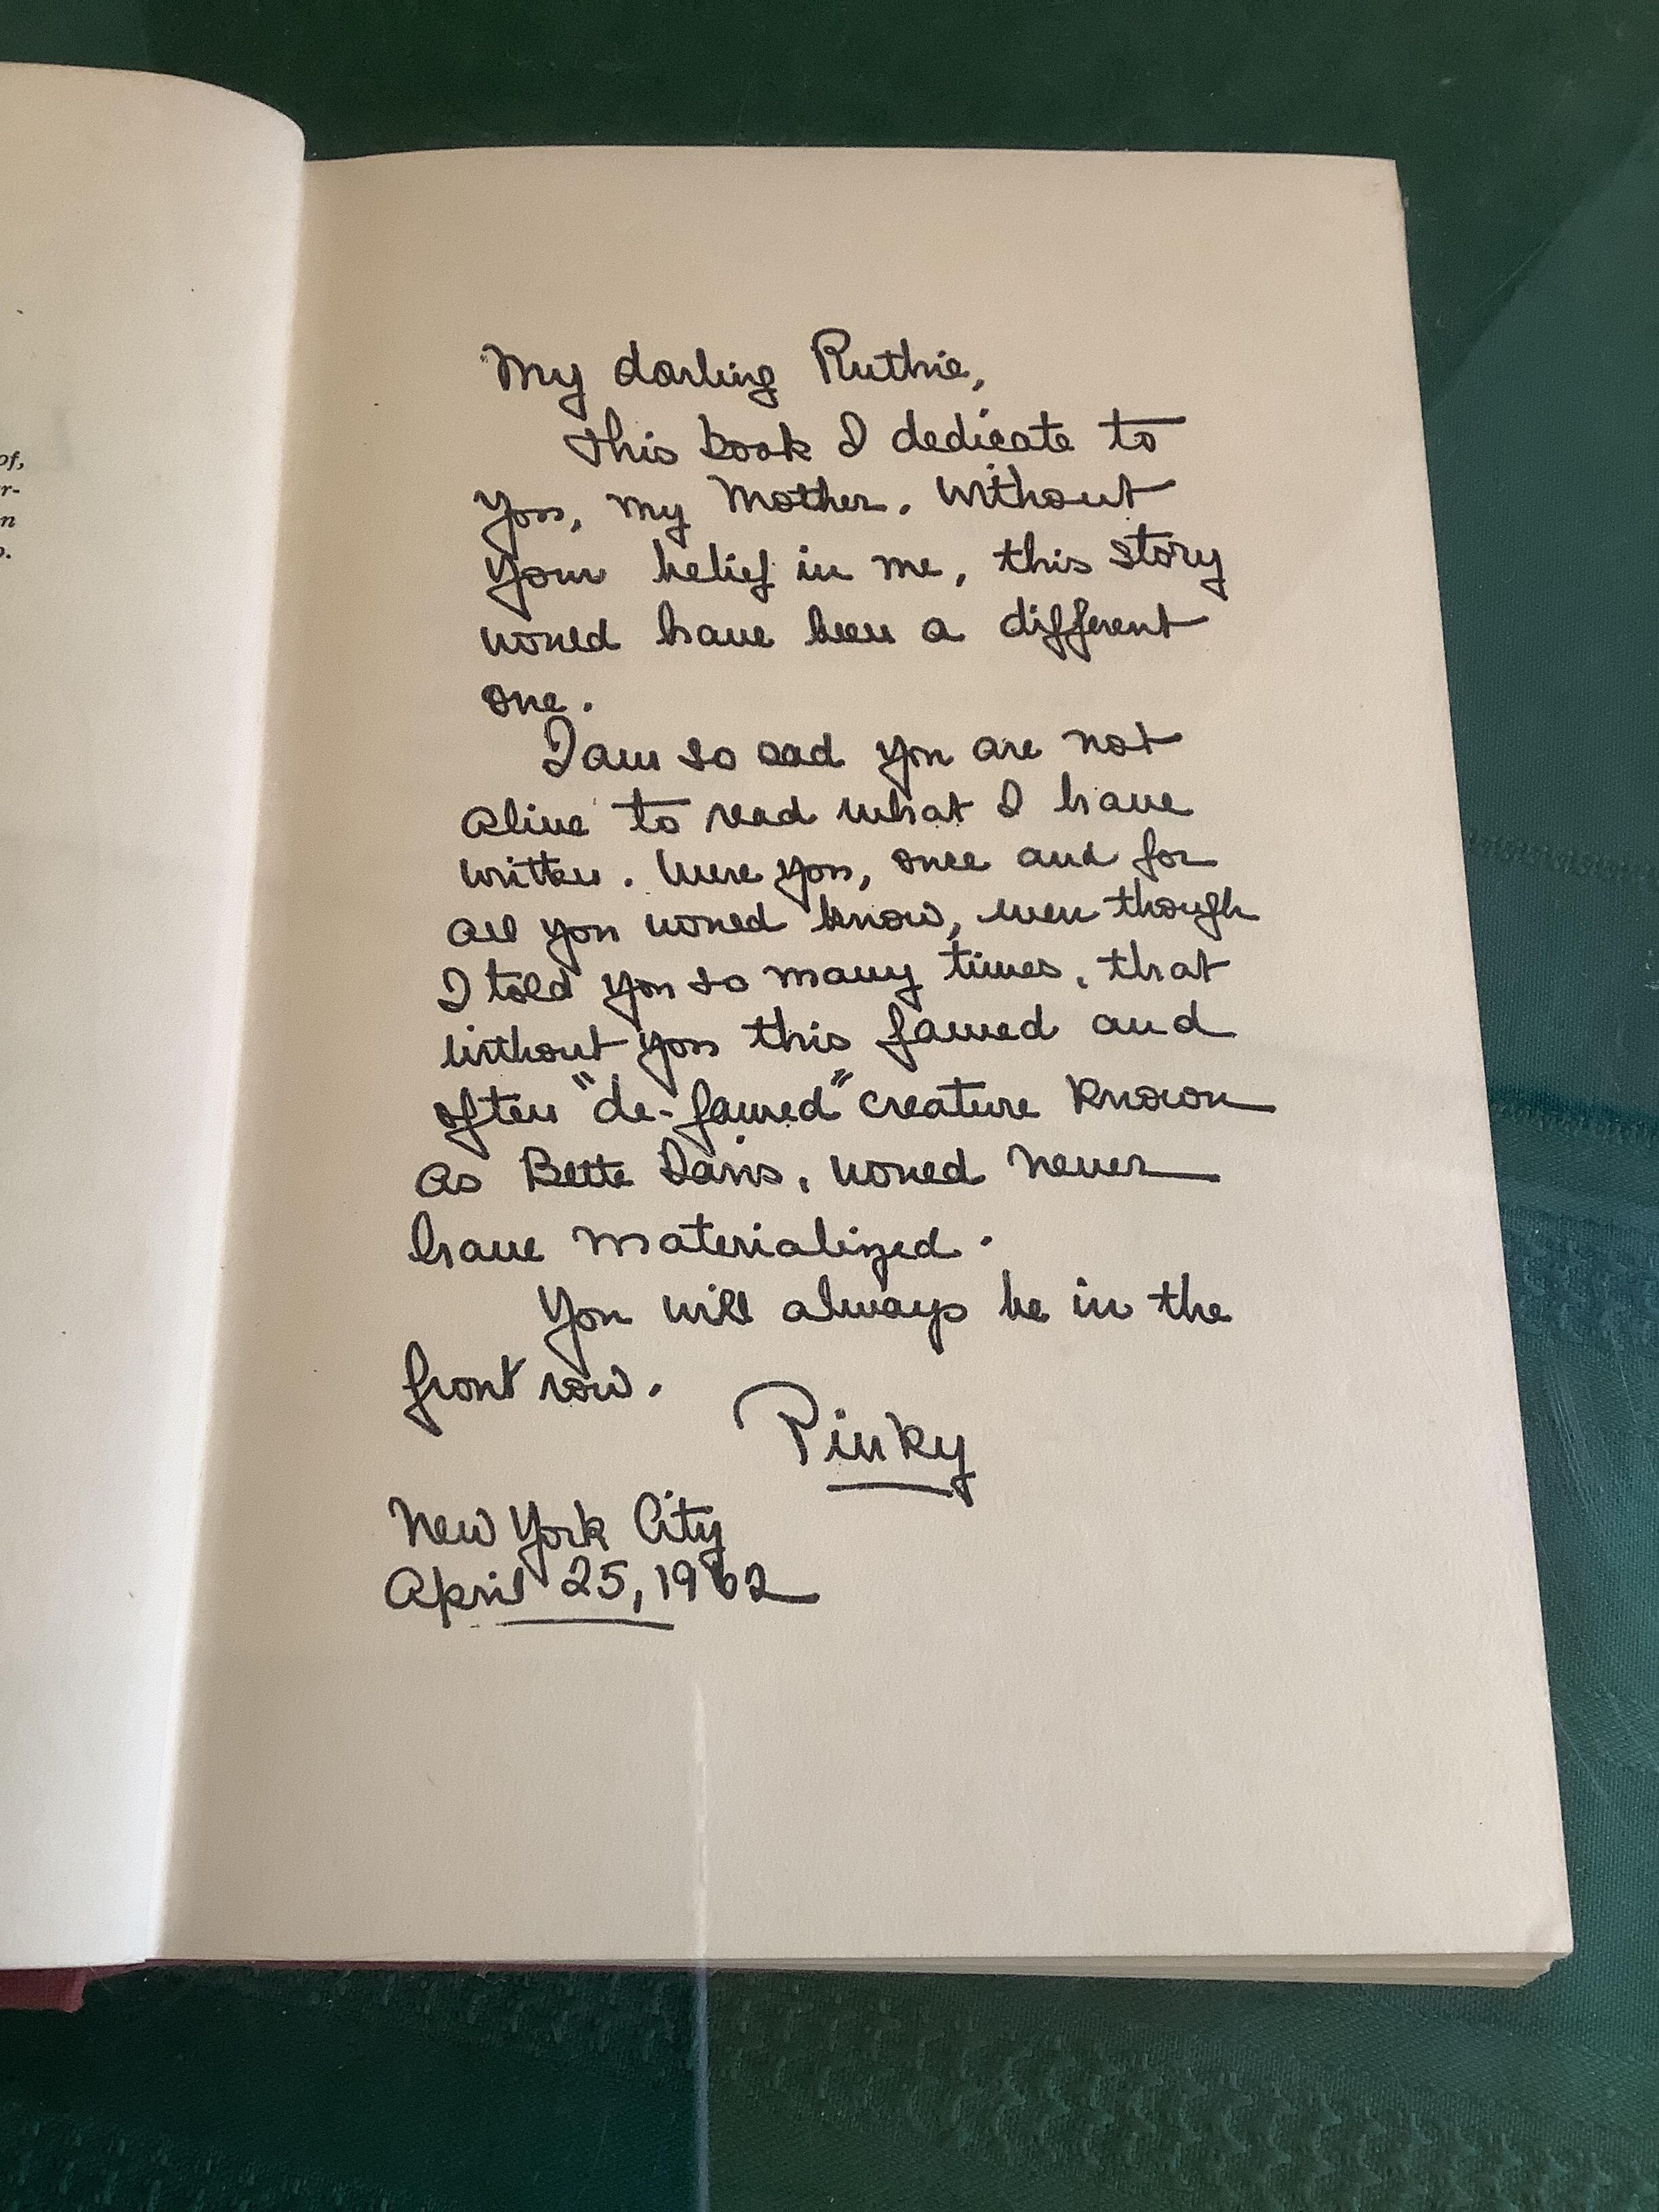 of,
r-
n
o.
My darling Ruthie,
This book I dedicate to
you, my Mother. Without
your belief in me, this story
would have been a different
one.
I am so sad you are not
alive to read what I have
written. Were you, once and for
all you would know, even though
I told you so many times, that
without you this famed and
often "de-famed" creature known
as Bette Davis, would never
have materialized.
You will always be in the
front row.
Pinky
New York City
April 25, 1962